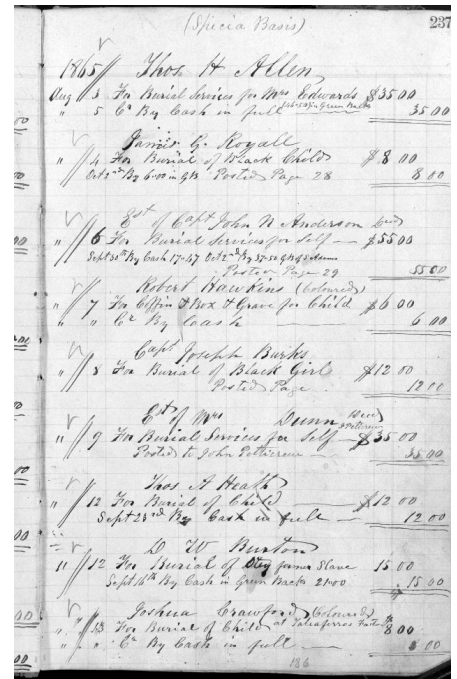 (Specia Basis)
237
1865 Thos H Allen
Aug 3 For Burial Services for Mrs Edwards $35 00
" 5 Cr By Cash in full in Green Backs 35 00
James G. Royall
" 4 For Burial of Black Child $8 00
Oct 2nd By 6-00 in GB Posted Page 28 8 00
Est of Capt John N Anderson Decd
" 6 For Burial Services for Self — $55 00
Sept 30th By Cash 17-47 Oct 2nd By 37-50
Posted Page 29 55 00
Robert Hawkins (Coloured)
" 7 For Coffin & Box & Grave for Child $6 00
" " Cr By Cash — 6 00
Capt Joseph Burks
" 8 For Burial of Black Girl $12 00
Posted Page 12 00
Est of Mrs Dunn Decd
" 9 For Burial Services for Self — $35 00
Posted to John — 35 00
Thos A Heath
" 12 For Burial of Child — $12 00
Sept 23rd By Cash in full — 12 00
D W Burton
" 12 For Burial of former Slave 15 00
Sept 16th By Cash in Green Backs 21-00 15 00
Joshua Crawford (Coloured)
" 13 For Burial of Child at Taliaferros Factory 8 00
" " Cr By Cash in full — 8 00
186